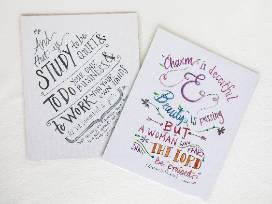 "And
that ye
STUDY to be
QUIET &
TO DO your own
BUSINESS &
TO WORK with your
own hands
Charm is deceitful
&
Beauty is passing
BUT
A WOMAN who FEARS
THE LORD
shall
be praised."